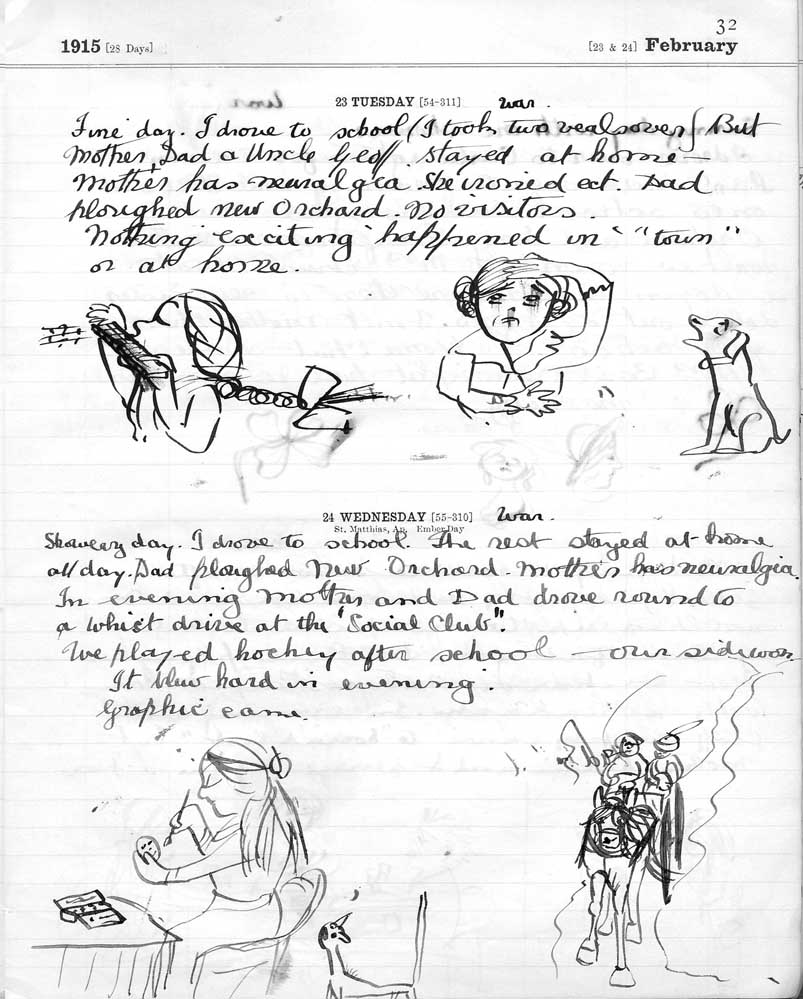 32
1915 [28 Days] [23 & 24] February
23 TUESDAY [54-311] war.
Fine day. I drove to school (I took two veals over) But
Mother, Dad a Uncle Geof stayed at home —
Mother has neuralgia. She ironed ect. Dad
ploughed New Orchard. No visitors.
Nothing exciting happened in "town"
or at home.
24 WEDNESDAY [55-310] war.
St. Matthias, Ap. Ember Day
Showery day. I drove to school. The rest stayed at home
all day. Dad ploughed New Orchard. Mother has neuralgia.
In evening Mother and Dad drove round to
a whist drive at the "Social Club".
We played hockey after school — our side won.
It blew hard in evening.
Graphic came.